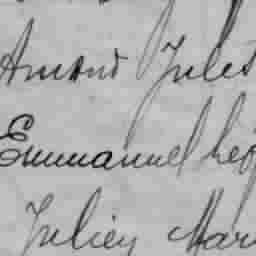 Amand Jules
Emmanuel Léo
Julien Mar